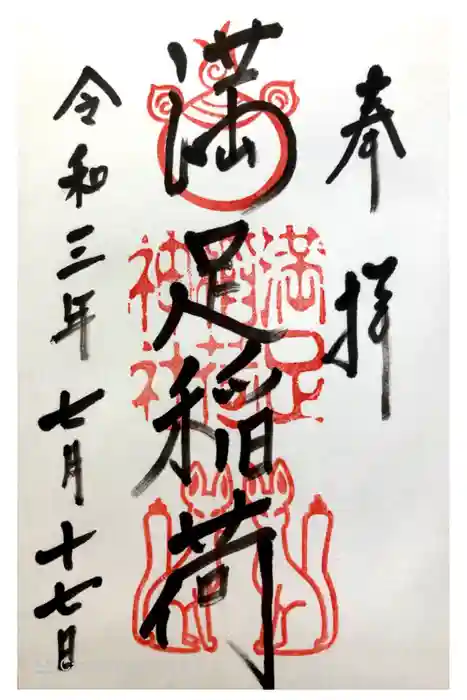 奉拝
満足稲荷
令和三年七月十七日
満足
稲荷